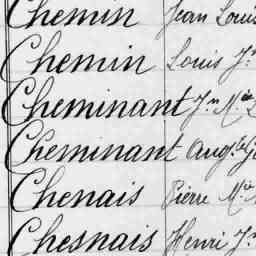 Chemin Jean Louis
Chemin Louis Jn
Cheminant Jn Mie L
Cheminant Augte
Chenais Pierre Mie
Chesnais Henri Jn